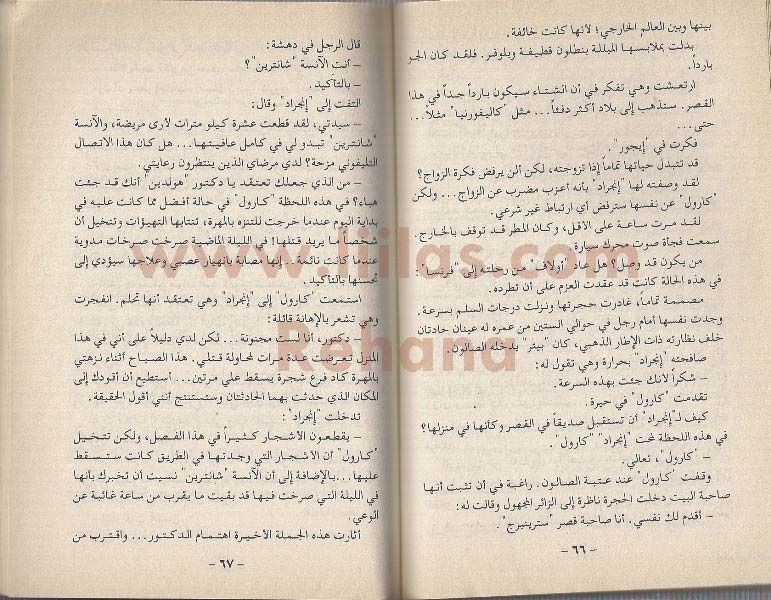 بينها وبين العالم الخارجي؛ لأنها كانت خائفة.
بدلت بملابسها المبللة بنطلون قطيفة وبلوفر. فلقد كان الجو
بارداً.
ارتعشت وهي تفكر في أن الشتاء سيكون بارداً جداً في هذا
القصر. ستذهب إلى بلاد أكثر دفئاً... مثل "كاليفورنيا" مثلاً...
حتى...
فكرت في "إيجور".
قد تتبدل حياتها تماماً إذا تزوجته، لكن ألن يرفض فكرة الزواج؟
لقد وصفته لها "إنجراد" بأنه أعزب مضرب عن الزواج... ولكن
"كارول" عن نفسها سترفض أي ارتباط غير شرعي.
لقد مرت ساعة على الأقل، وكان المطر قد توقف بالخارج.
سمعت فجأة صوت محرك سيارة.
من يكون قد وصل؟ هل عاد "أولاف" من رحلته إلى "فرنسا"؟
في هذه الحالة كانت قد عقدت العزم على أن تطرده.
مصممة تماماً، غادرت حجرتها ونزلت درجات السلم بسرعة.
وجدت نفسها أمام رجل في حوالي الستين من عمره له عينان حادتان
خلف نظارته ذات الإطار الذهبي، كان "بيتر" يدخله الصالون.
صافحته "إنجراد" بحرارة وهي تقول له:
– شكراً لأنك جئت بهذه السرعة.
تقدمت "كارول" في حيرة.
كيف لـ"إنجراد" أن تستقبل صديقاً في القصر وكأنها في منزلها؟
في هذه اللحظة لمحت "إنجراد" "كارول".
– "كارول"، تعالي.
وقفت "كارول" عند عتبة الصالون. راغبة في أن تثبت أنها
صاحبة البيت دخلت الحجرة ناظرة إلى الزائر المجهول وقالت له:
– أقدم لك نفسي. أنا صاحبة قصر "سترينبرج".
– ٦٦ –
قال الرجل في دهشة:
– أنت الآنسة "شانترين"؟
– بالتأكيد.
التفت إلى "إنجراد" وقال:
– سيدتي، لقد قطعت عشرة كيلو مترات لأرى مريضة، والآنسة
"شانترين" تبدو لي في كامل عافيتها... هل كان هذا الاتصال
التليفوني مزحة؟ لدي مرضاي الذين ينتظرون رعايتي.
– من الذي جعلك تعتقد يا دكتور "هولدين" أنك قد جئت
هباء؟ في هذه اللحظة "كارول" في حالة أفضل مما كانت عليه في
بداية اليوم عندما خرجت للتنزه بالمهرة، تنتابها التهيؤات وتتخيل أن
شخصاً ما يريد قتلها! في الليلة الماضية صرخت صرخات مدوية
عندما كانت نائمة... إنها مصابة بانهيار عصبي وعلاجها سيؤدي إلى
تحسنها بالتأكيد.
استمعت "كارول" إلى "إنجراد" وهي تعتقد أنها تحلم. انفجرت
وهي تشعر بالإهانة قائلة:
– دكتور، أنا لست مجنونة... لكن لدي دليلاً على أني في هذا
المنزل تعرضت عدة مرات لمحاولة قتلي. هذا الصباح أثناء نزهتي
بالمهرة كاد فرع شجرة يسقط على مرتين... أستطيع أن أقودك إلى
المكان الذي حدثت بهما الحادثتان وستستنتج أنني أقول الحقيقة.
تدخلت "إنجراد":
– يقطعون الأشجار كثيراً في هذا الفصل، ولكن تتخيل
"كارول" أن الأشجار التي وجدتها في الطريق كانت ستسقط
عليها... بالإضافة إلى أن الآنسة "شانترين" نسيت أن تخبرك بأنها
في الليلة التي صرخت فيها قد بقيت ما يقرب من ساعة غائبة عن
الوعي.
أثارت هذه الجملة الأخيرة اهتمام الدكتور... واقترب من
– ٦٧ –
www.liilas.com
Rehana